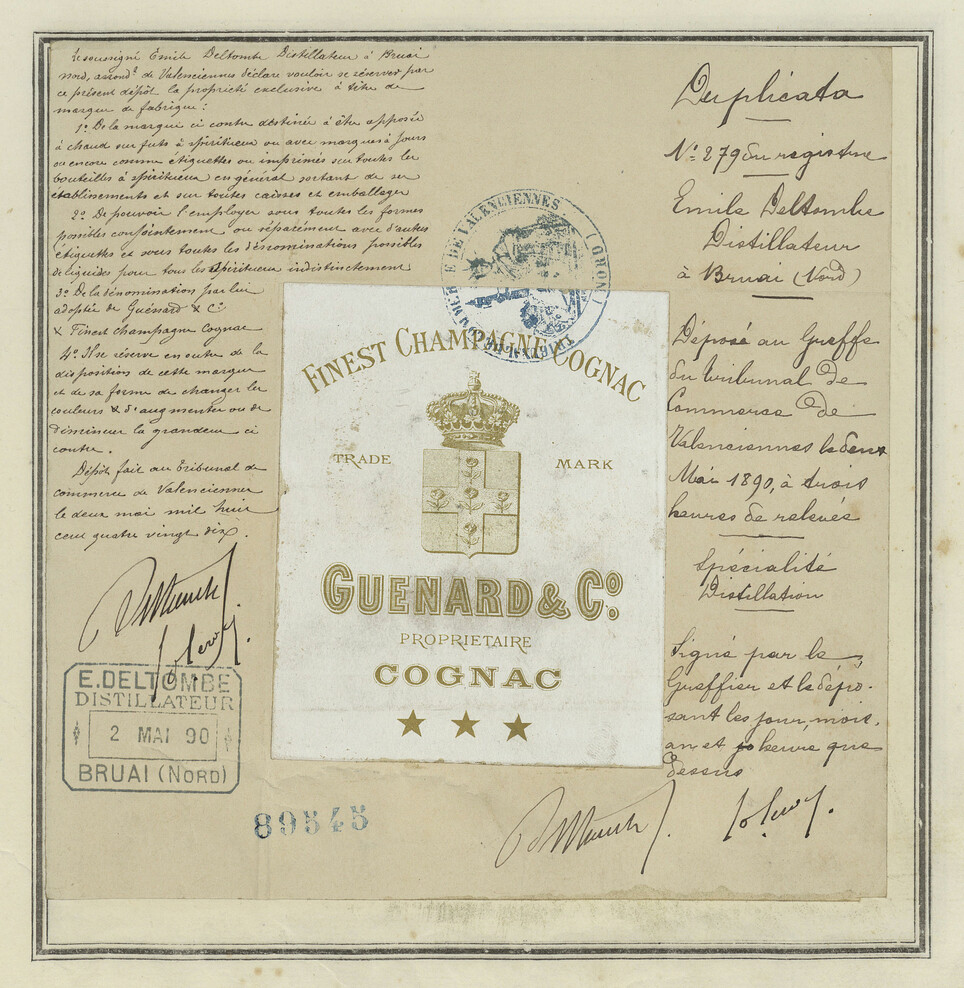 Le soussigné Emile Deltombe Distillateur à Bruai
Nord, arrond.t de Valenciennes déclare vouloir se réserver par
ce présent dépôt la propriété exclusive à titre de
marque de fabrique :
1º De la marque ci contre destinée à être apposée
à chaud sur futs à spiritueux ou avec marques à jours
ou encore comme étiquettes ou imprimés sur toutes les
bouteilles à spiritueux en général sortant de ses
établissements et sur toutes caisses et emballages
2º De pouvoir l'employer sous toutes les formes
possibles conjointement ou séparément avec d'autres
étiquettes et sous toutes les dénominations possibles
de liquides pour tous les spiritueux indistinctement
3º De la dénomination par lui
adoptée de Guénard & Cº
& Finest champagne Cognac
4º Il se réserve en outre de la
disposition de cette marque
et de sa forme de changer les
couleurs & d'augmenter ou de
diminuer la grandeur ci
contre.
Dépôt fait au Tribunal de
commerce de Valenciennes
le deux mai mil huit
cent quatre vingt dix.
E. DELTOMBE
DISTILLATEUR
2 MAI 90
BRUAI (NORD)
89545
DE VALENCIENNES (NORD)
FINEST CHAMPAGNE COGNAC
TRADE MARK
GUENARD & Cº.
PROPRIETAIRE
COGNAC
Duplicata
Nº 279 du registre
Emile Deltombe
Distillateur
à Bruai (Nord)
Déposé au Greffe
du tribunal de
Commerce de
Valenciennes le deux
Mai 1890, à trois
heures de relevée
Spécialité
Distillation
Signé par le
Greffier et le dépo-
sant les jour, mois,
an et heure que
dessus